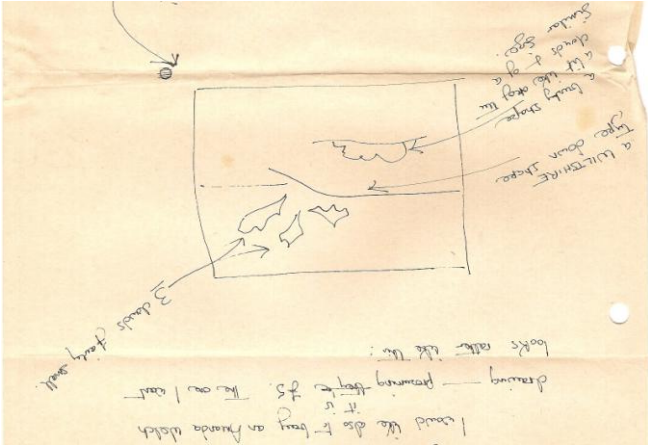 I would like also to buy an Amanda Welch
it is
drawing — presuming they're £5. The one I want
looks rather like this:
3 clouds, fairly small.
a WILTSHIRE
type down shape
a lumpy shape
a bit like the
clouds & of a
similar size.